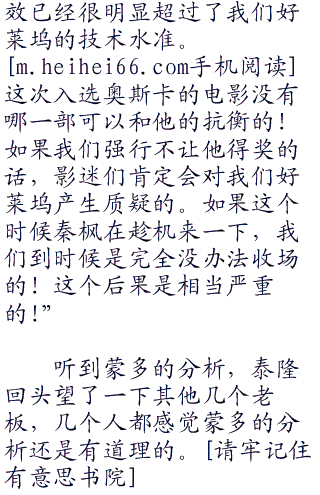 效已经很明显超过了我们好
莱坞的技术水准。
[m.heihei66.com手机阅读]
这次入选奥斯卡的电影没有
哪一部可以和他的抗衡的！
如果我们强行不让他得奖的
话，影迷们肯定会对我们好
莱坞产生质疑的。如果这个
时候秦枫在趁机来一下，我
们到时候是完全没办法收场
的！这个后果是相当严重
的！”
听到蒙多的分析，泰隆
回头望了一下其他几个老
板，几个人都感觉蒙多的分
析还是有道理的。[请牢记住
有意思书院]